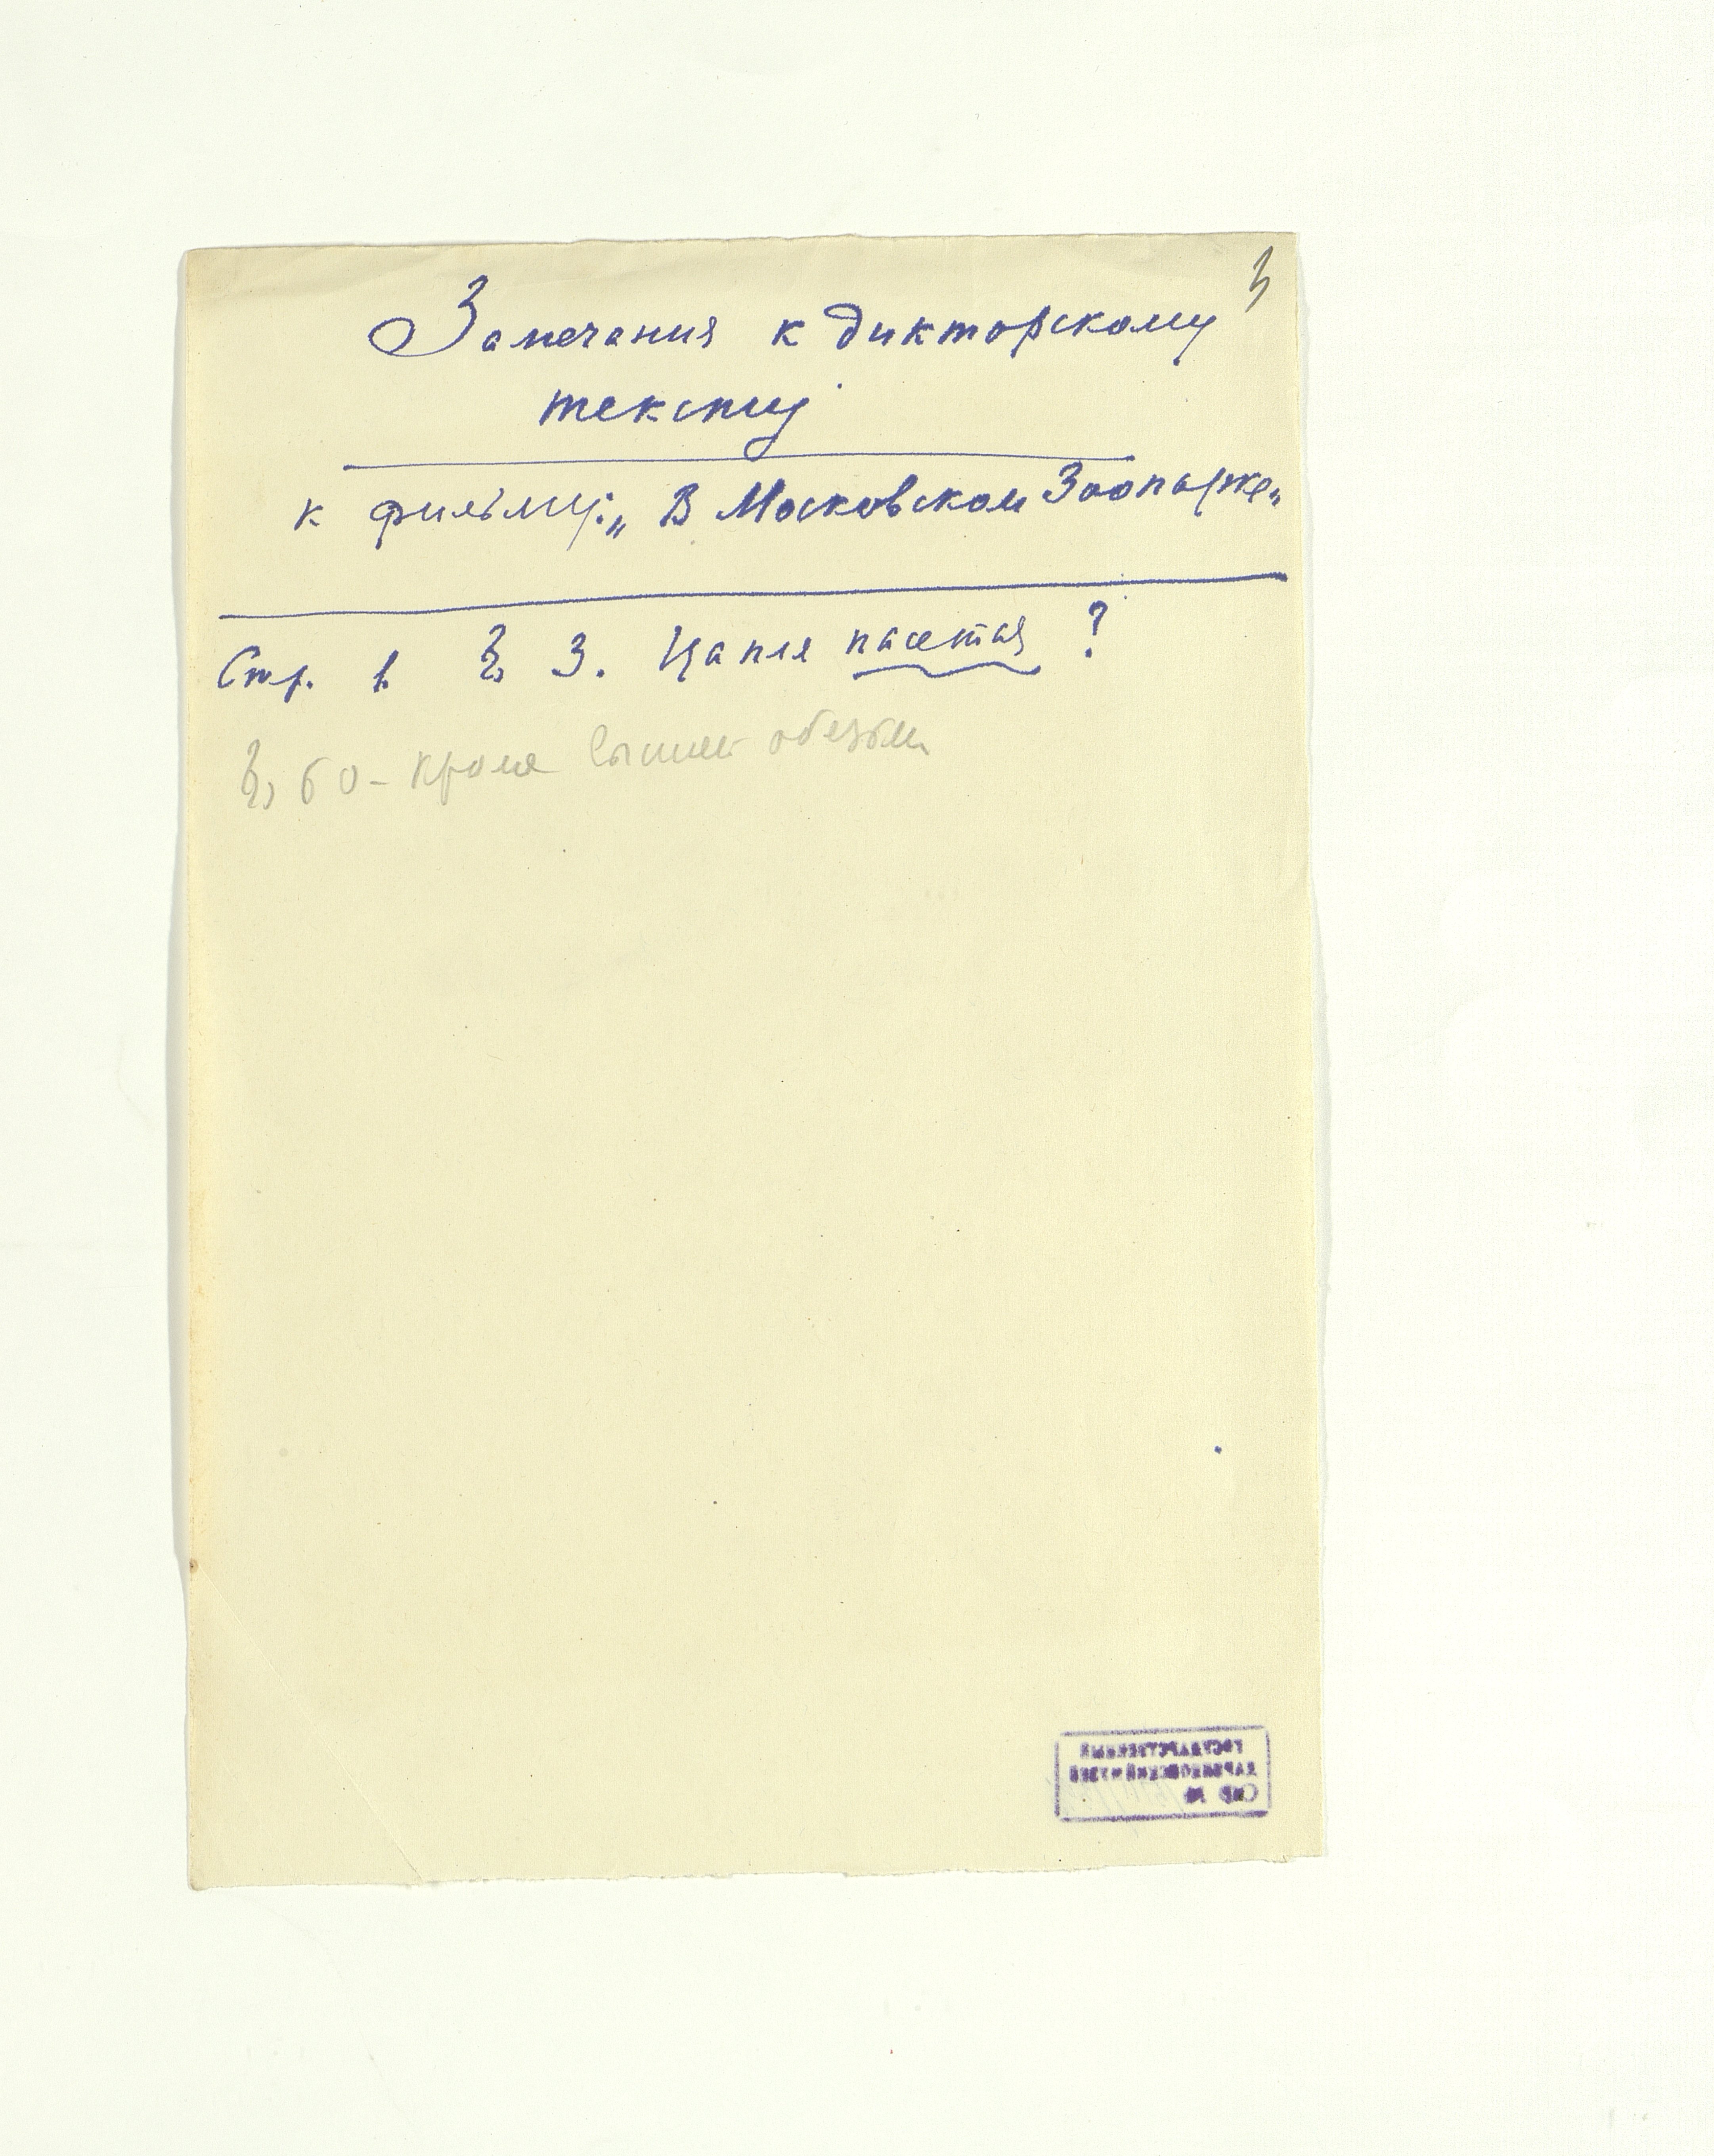 3
Замечания к дикторскому
тексту
к фильму: „В Московском Зоопарке„
Стр. 1. § 3. Цапля пасется ?
§ 60 - кроме высших обезьян
ГОСУДАРСТВЕННЫЙ
ДАРВИНОВСКИЙ МУЗЕЙ
№